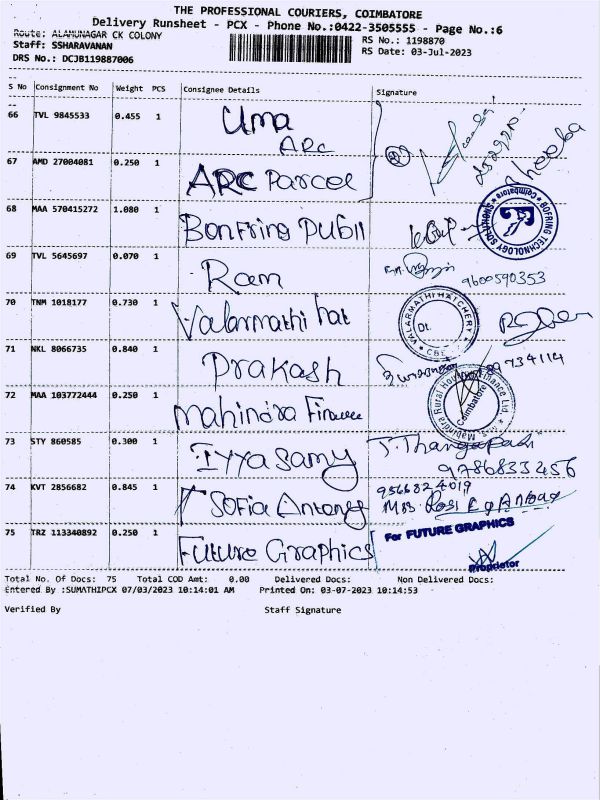 THE PROFESSIONAL COURIERS, COIMBATORE
Delivery Runsheet - PCX - Phone No.:0422-3505555 - Page No.:6
Route: ALAMUNAGAR CK COLONY
RS No.: 1198870
Staff: SSHARAVANAN
RS Date: 03-Jul-2023
DRS No.: DCJB119887006
S No Consignment No Weight PCS Consignee Details Signature
66 TVL 9845533 0.455 1 Uma
ARC
67 AMD 27004081 0.250 1 ARC Parcel
Sheeba
68 MAA 570415272 1.080 1 Bonfring Publi
BOFRING TECHNOLOGY SOLUTIONS Coimbatore
69 TVL 5645697 0.070 1 Ram 9600590353
70 TNM 1018177 0.730 1 Valarmathi hat
VALARMATHI HATCHERY Dt. CBE
71 NKL 8066735 0.840 1 Prakash
72 MAA 103772444 0.250 1 Mahindra Finance
Mahindra Rural Housing Finance Ltd. Coimbatore
73 STY 860585 0.300 1 Iyyasamy J. Thangapadi
9786833456
74 KVT 2856682 0.845 1 Sofia Antony 9566824019
Mrs. Antony
75 TRZ 113340892 0.250 1 Future Graphics For FUTURE GRAPHICS
Proprietor
Total No. Of Docs: 75 Total COD Amt: 0.00 Delivered Docs: Non Delivered Docs:
Entered By :SUMATHIPCX 07/03/2023 10:14:01 AM Printed On: 03-07-2023 10:14:53
Verified By Staff Signature